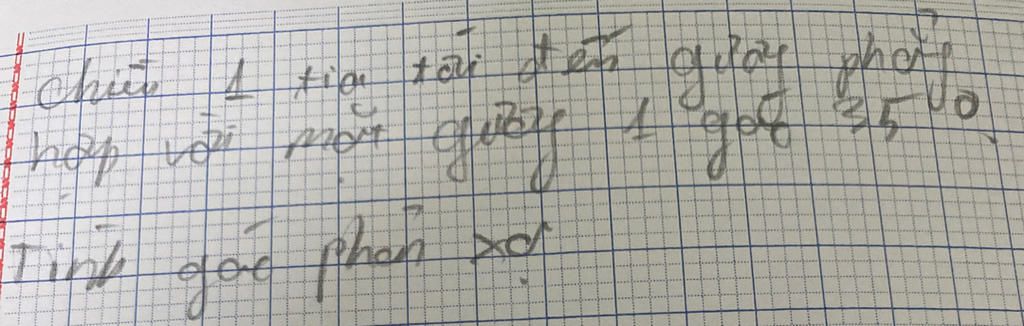 chiếu 1 tia tới đến gương phẳng
hợp với mặt gương 1 góc 35°
Tính góc phản xạ